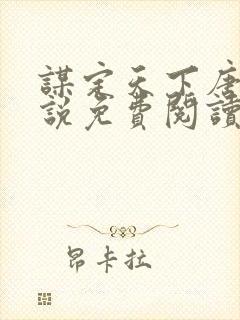 謀定天下唐
說免費閱讀
昂卡拉